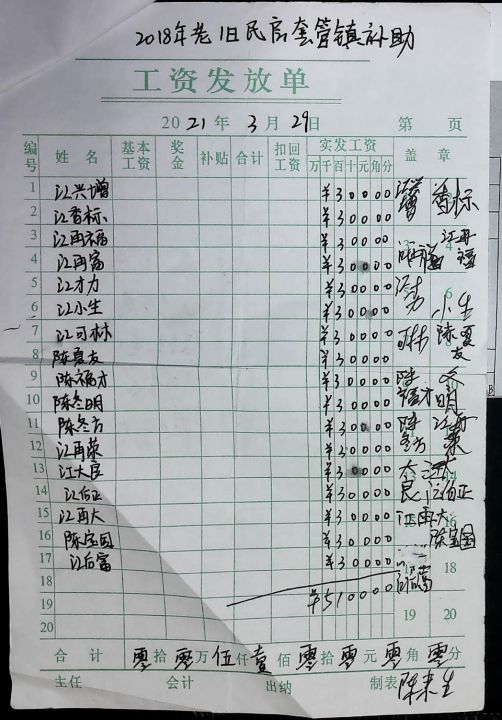 2018年老旧民房套管镇补助
工资发放单
2021年3月29日 第 页
编号 姓名 基本工资 奖金 补贴 合计 扣回工资 实发工资 盖章
万千百十元角分
1 江兴增 ¥30000
2 江香标 ¥30000 香标
3 江再福 ¥30000 江再福
4 江再富 ¥30000
5 江才力 ¥30000
6 江小生 ¥30000 小生
7 江可林 ¥30000 可林
8 陈夏友 ¥30000 陈夏友
9 陈福才 ¥30000 陈福才
10 陈冬明 ¥30000 冬明
11 陈冬方 ¥30000 陈冬方
12 江再荣 ¥30000 江再荣
13 江大良 ¥30000 江大良
14 江伯正 ¥30000 江伯正
15 江再大 ¥30000 江再大
16 陈宝国 ¥30000 陈宝国
17 江后富 ¥30000
18 18
19 ¥510000 19
20 20
合计 零拾零万伍仟壹佰零拾零元零角零分
主任 会计 出纳 制表 陈来生